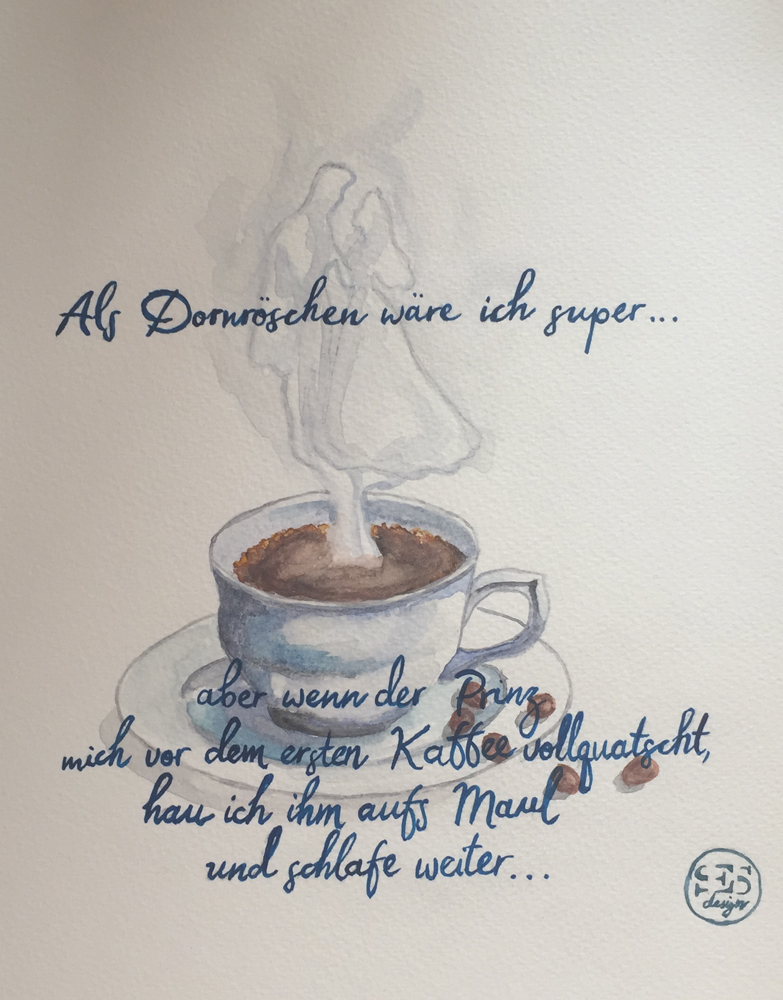 Als Dornröschen wäre ich super...
aber wenn der Prinz
mich vor dem ersten Kaffee vollquatscht,
hau ich ihm aufs Maul
und schlafe weiter...
design